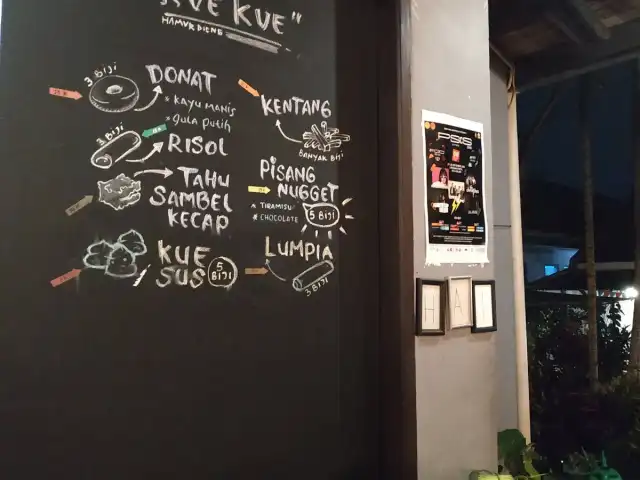 KUE"
3 BIJI
DONAT
* KAYU MANIS
* GULA PUTIH
3 BIJI
RISOL
TAHU
SAMBEL
KECAP
KUE
SUS
5
BIJI
KENTANG
BANYAK BIJI
PISANG
NUGGET
* TIRAMISU
* CHOCOLATE
5 BIJI
LUMPIA
3 BIJI
H A I